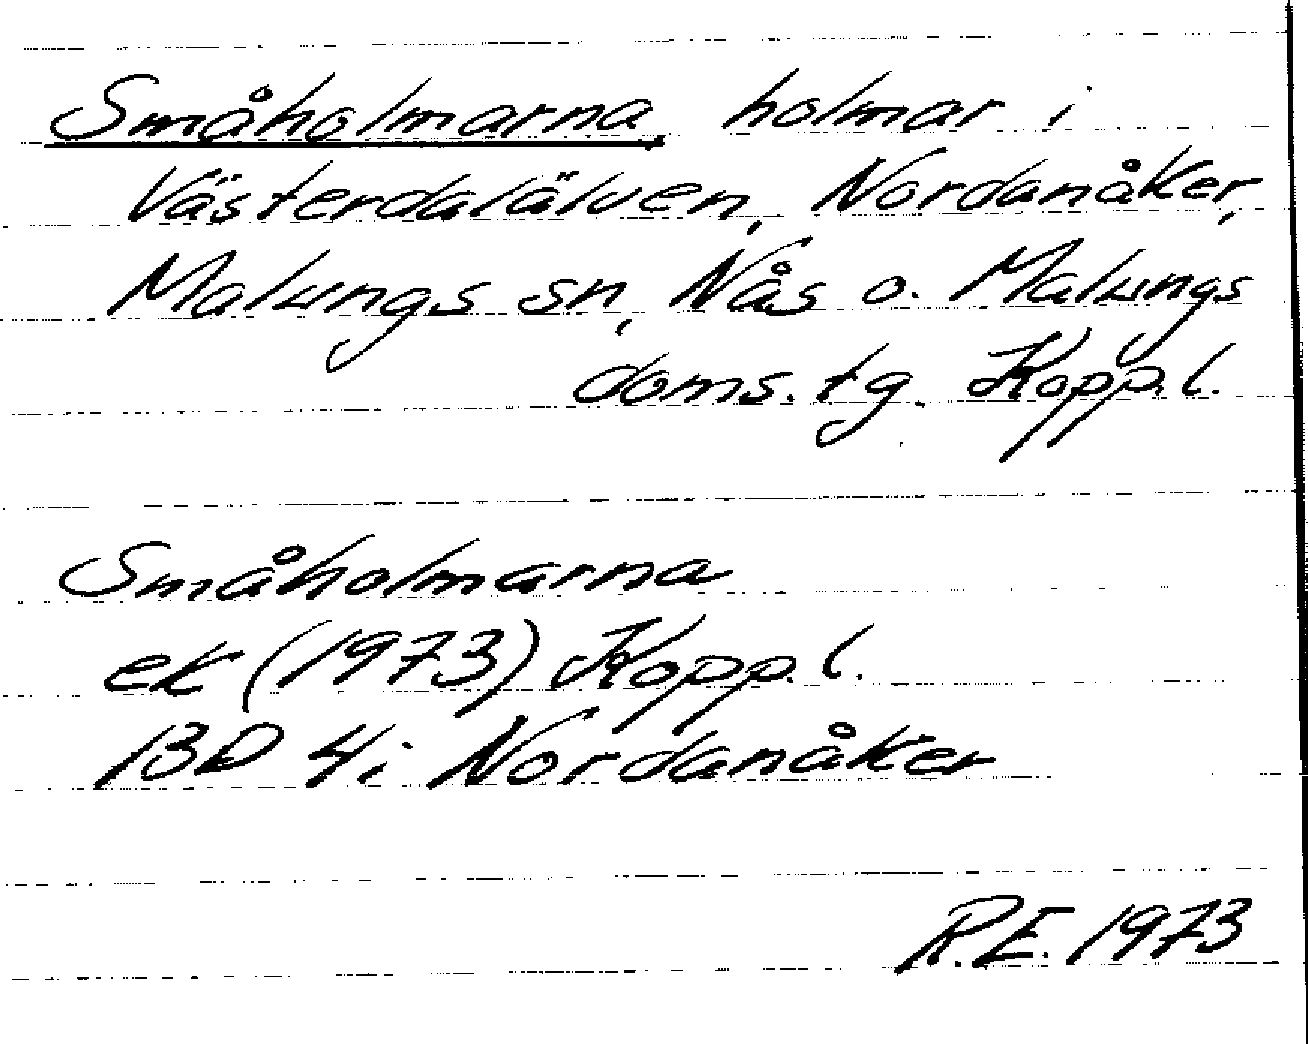 Småholmarna, holmar i
Västerdalälven, Nordanåker,
Malungs sn, Nås o. Malungs
doms. tg. Kopp. l.
Småholmarna
ek (1973) Kopp. l.
13D 4i Nordanåker
R.E. 1973